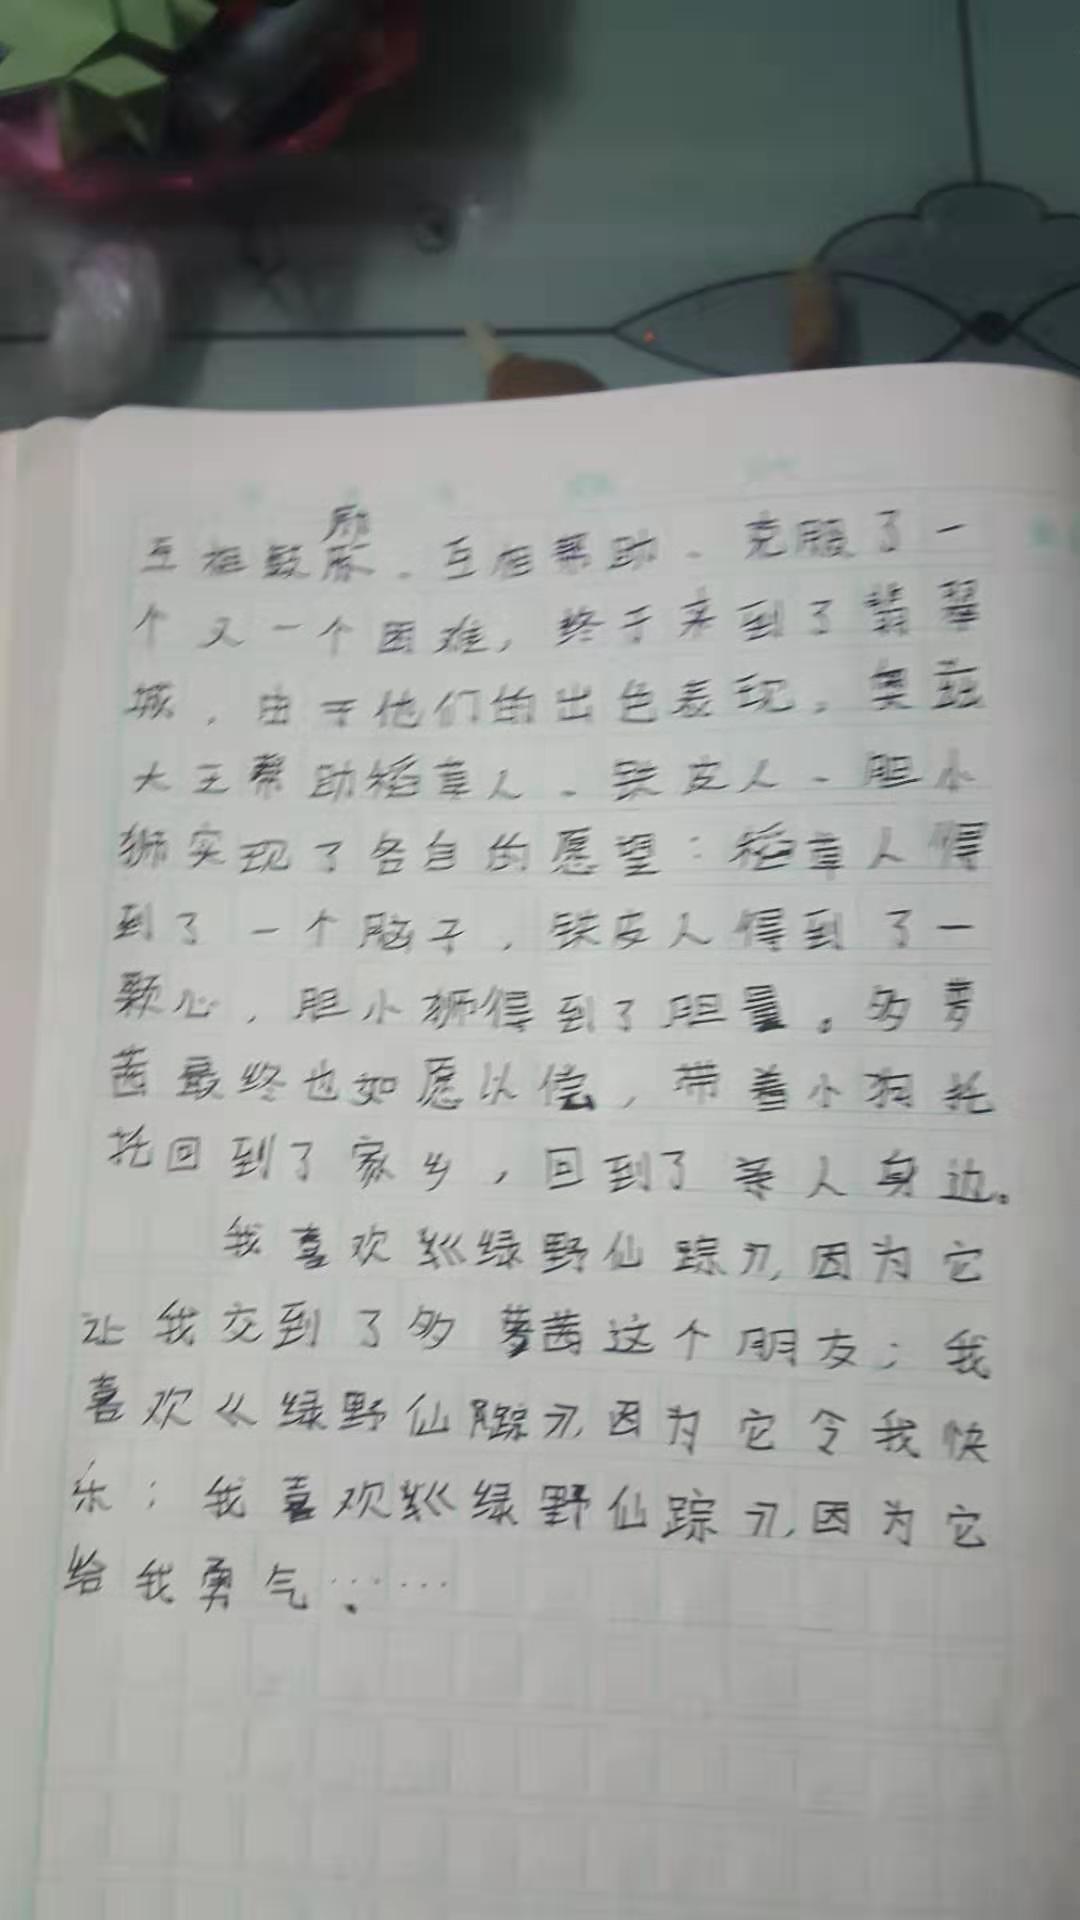 互相鼓励、互相帮助、克服了一
个又一个困难，终于来到了翡翠
城，由于他们的出色表现，奥兹
大王帮助稻草人、铁皮人、胆小
狮实现了各自的愿望：稻草人得
到了一个脑子，铁皮人得到了一
颗心，胆小狮得到了胆量。多萝
茜最终也如愿以偿，带着小狗托
托回到了家乡，回到了亲人身边。
我喜欢《绿野仙踪》,因为它
让我交到了多萝茜这个朋友；我
喜欢《绿野仙踪》,因为它令我快
乐；我喜欢《绿野仙踪》,因为它
给我勇气……